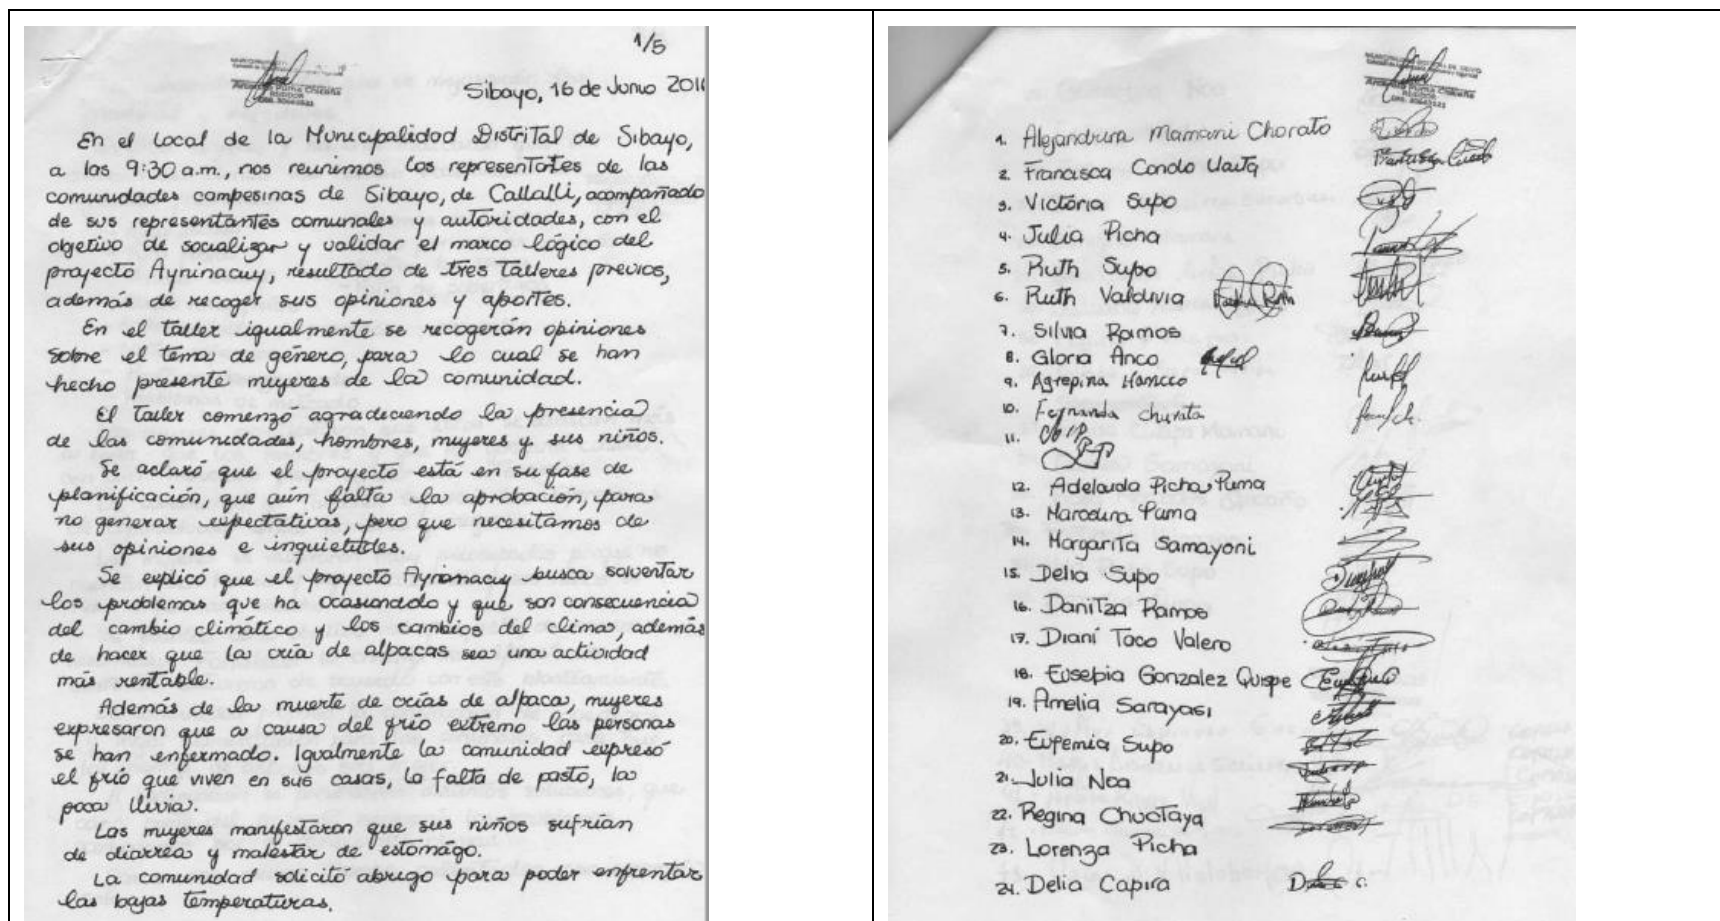 1/5
Sibayo, 16 de Junio 201
En el local de la Municipalidad Distrital de Sibayo,
a las 9:30 a.m., nos reunimos los representantes de las
comunidades campesinas de Sibayo, de Callalli, acompañado
de sus representantes comunales y autoridades, con el
objetivo de socializar y validar el marco lógico del
proyecto Ayninacuy, resultado de tres talleres previos,
además de recoger sus opiniones y aportes.
En el taller igualmente se recogerán opiniones
sobre el tema de género, para lo cual se han
hecho presente mujeres de la comunidad.
El taller comenzó agradeciendo la presencia
de las comunidades, hombres, mujeres y sus niños.
Se aclaró que el proyecto está en su fase de
planificación, que aún falta la aprobación, para
no generar expectativas, pero que necesitamos de
sus opiniones e inquietudes.
Se explicó que el proyecto Ayninacuy busca solventar
los problemas que ha ocasionado y que son consecuencia
del cambio climático y los cambios del clima, además
de hacer que la cría de alpacas sea una actividad
más rentable.
Además de la muerte de crías de alpaca, mujeres
expresaron que a causa del frío extremo las personas
se han enfermado. Igualmente la comunidad expresó
el frío que viven en sus casas, la falta de pasto, la
poca lluvia.
Las mujeres manifestaron que sus niños sufrían
de diarrea y malestar de estómago.
La comunidad solicitó abrigo para poder enfrentar
las bajas temperaturas.
1. Alejandrina Mamani Chorato
2. Francisca Condo Uaita
3. Victória Supo
4. Julia Picha
5. Ruth Supo
6. Ruth Valdivia
7. Silvia Ramos
8. Gloria Anco
9. Agrepina Hancco
10. Fernanda Churata
11.
12. Adelaida Picha Puma
13. Marcelina Puma
14. Margarita Samayoni
15. Delia Supo
16. Danitza Ramos
17. Diani Taco Valero
18. Eusebia Gonzalez Quispe
19. Amelia Sarayasi
20. Eufemia Supo
21. Julia Noa
22. Regina Chuctaya
23. Lorenza Picha
24. Delia Capira